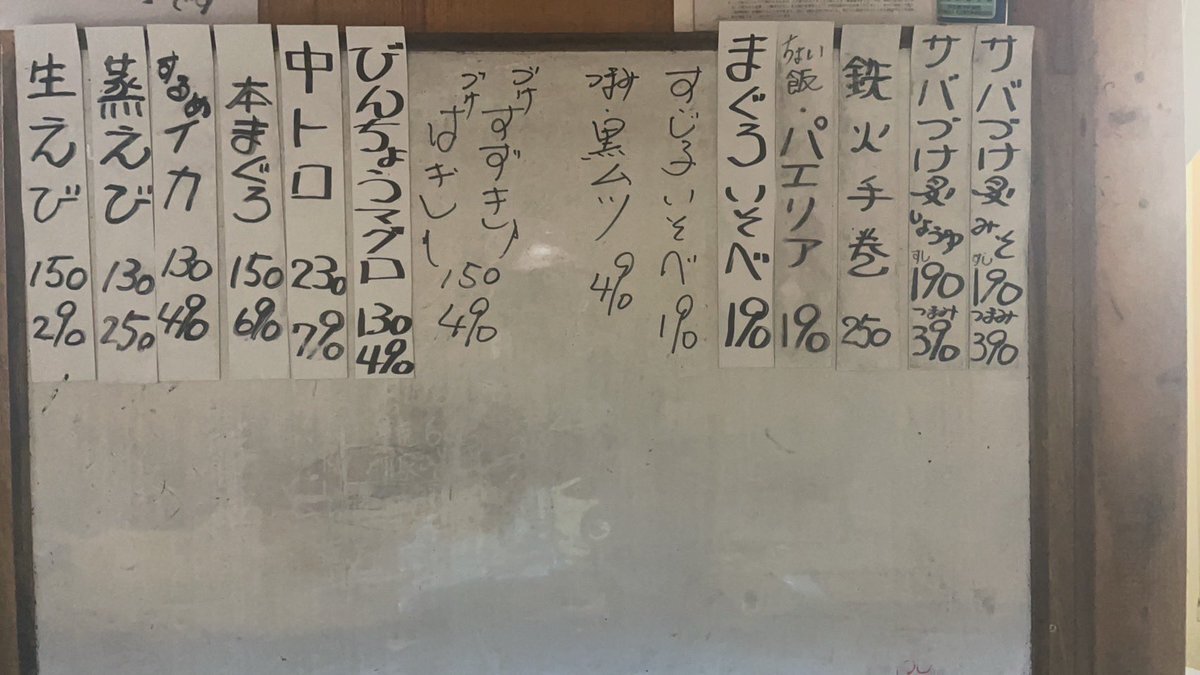 サバづけ炙みそ すし190 つまみ390
サバづけ炙しょうゆ すし190 つまみ390
鉄火手巻 250
ちょい飯・パエリア 190
まぐろいそべ 190
すじ子いそべ 190
つまみ・黒ムツ 490
づけすずき
づけはぎし
150 490
びんちょうマグロ 130 490
中トロ 230 790
本まぐろ 150 690
するめイカ 130 490
蒸えび 130 250
生えび 150 290